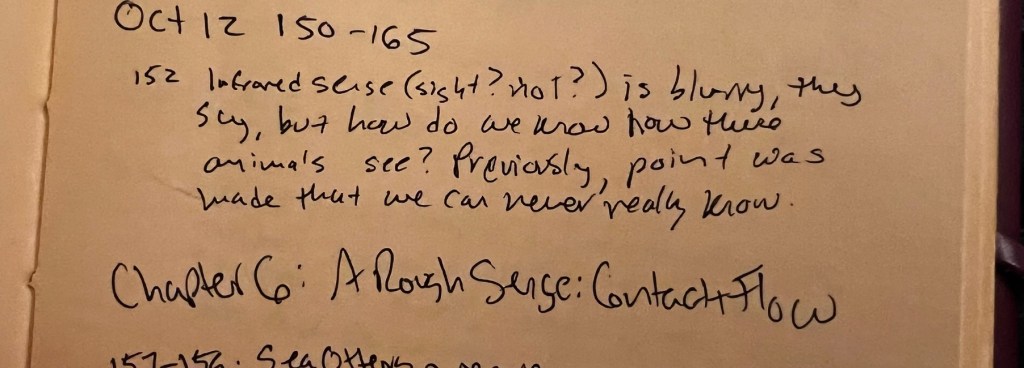 Oct 12 150-165
152 Infrared sense (sight? not?) is blurry, they
say, but how do we know how these
animals see? Previously, point was
made that we can never really know.
Chapter 6: A Rough Sense: Contact + Flow
157-156. Sea Otters